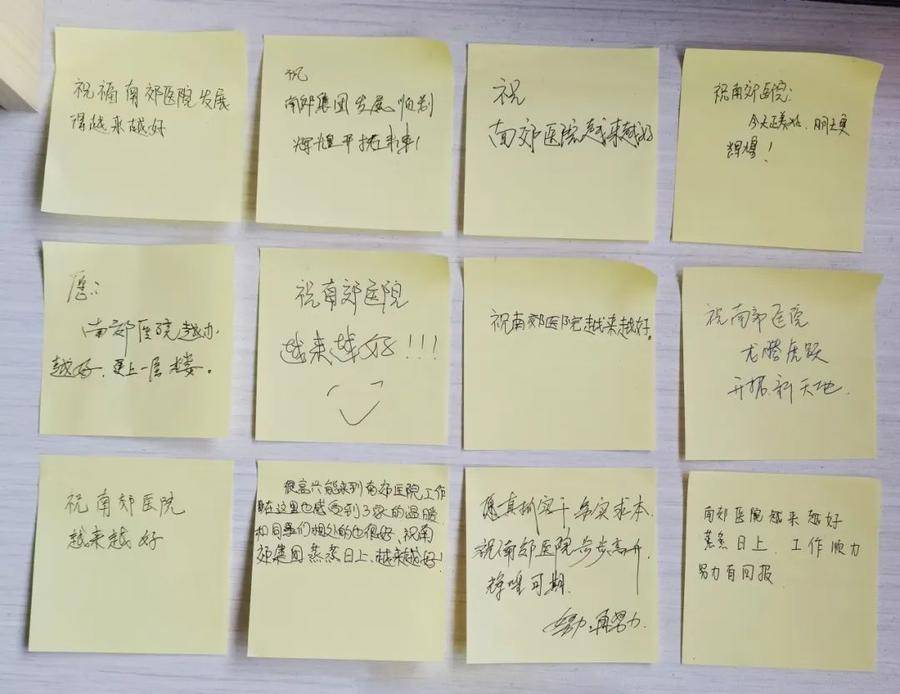 祝福南郊医院发展
得越来越好
祝
南郊集团发展、
祝
南郊医院越来越好
祝南郊医院:
今天正美好、明天更
辉煌!
愿:
南郊医院越办
越好,更上一层楼。
祝南郊医院
越来越好!!!
祝南郊医院越来越好。
祝南郊医院
龙腾虎跃
开拓新天地.
祝南郊医院
越来越好
很高兴能来到南郊医院工作
在这里也感受到了家的温暖
和同事们相处的也很好、祝南
郊集团蒸蒸日上、越来越好!
愿真抓实干 务实求本
祝南郊医院步步高升
辉煌可期.
努力,再努力.
南郊医院越来越好
蒸蒸日上、工作顺力
努力有回报